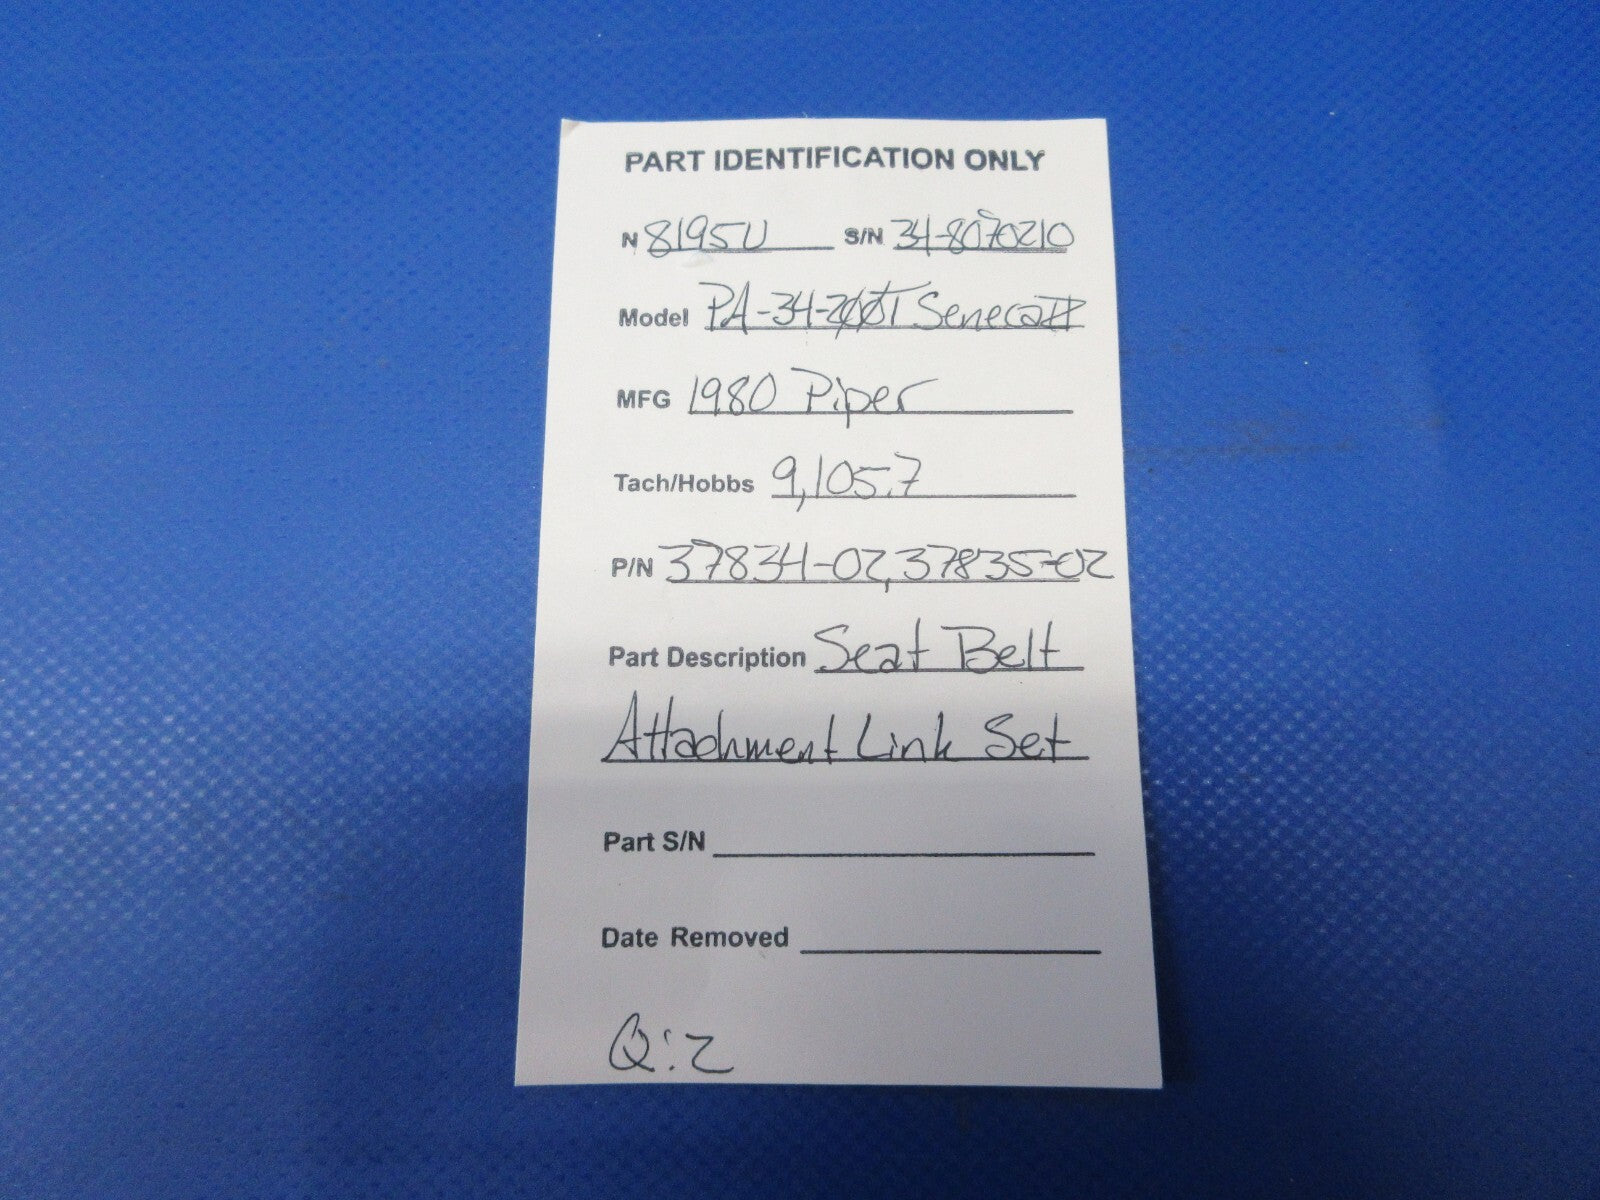 PART IDENTIFICATION ONLY
N 8195U S/N 34-8070210
Model PA-34-200T Seneca II
MFG 1980 Piper
Tach/Hobbs 9,105.7
P/N 37834-02, 37835-02
Part Description Seat Belt
Attachment Link Set
Part S/N
Date Removed
Q: 2